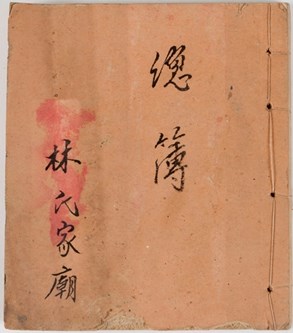 總簿
林氏家廟